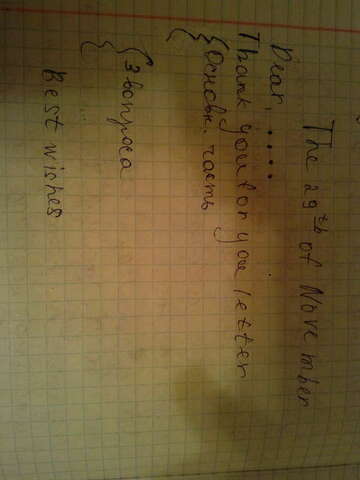 The 29th of November
Dear, .....
Thank you for you letter
{ Основн. часть
{ 3 вопроса
Best wishes